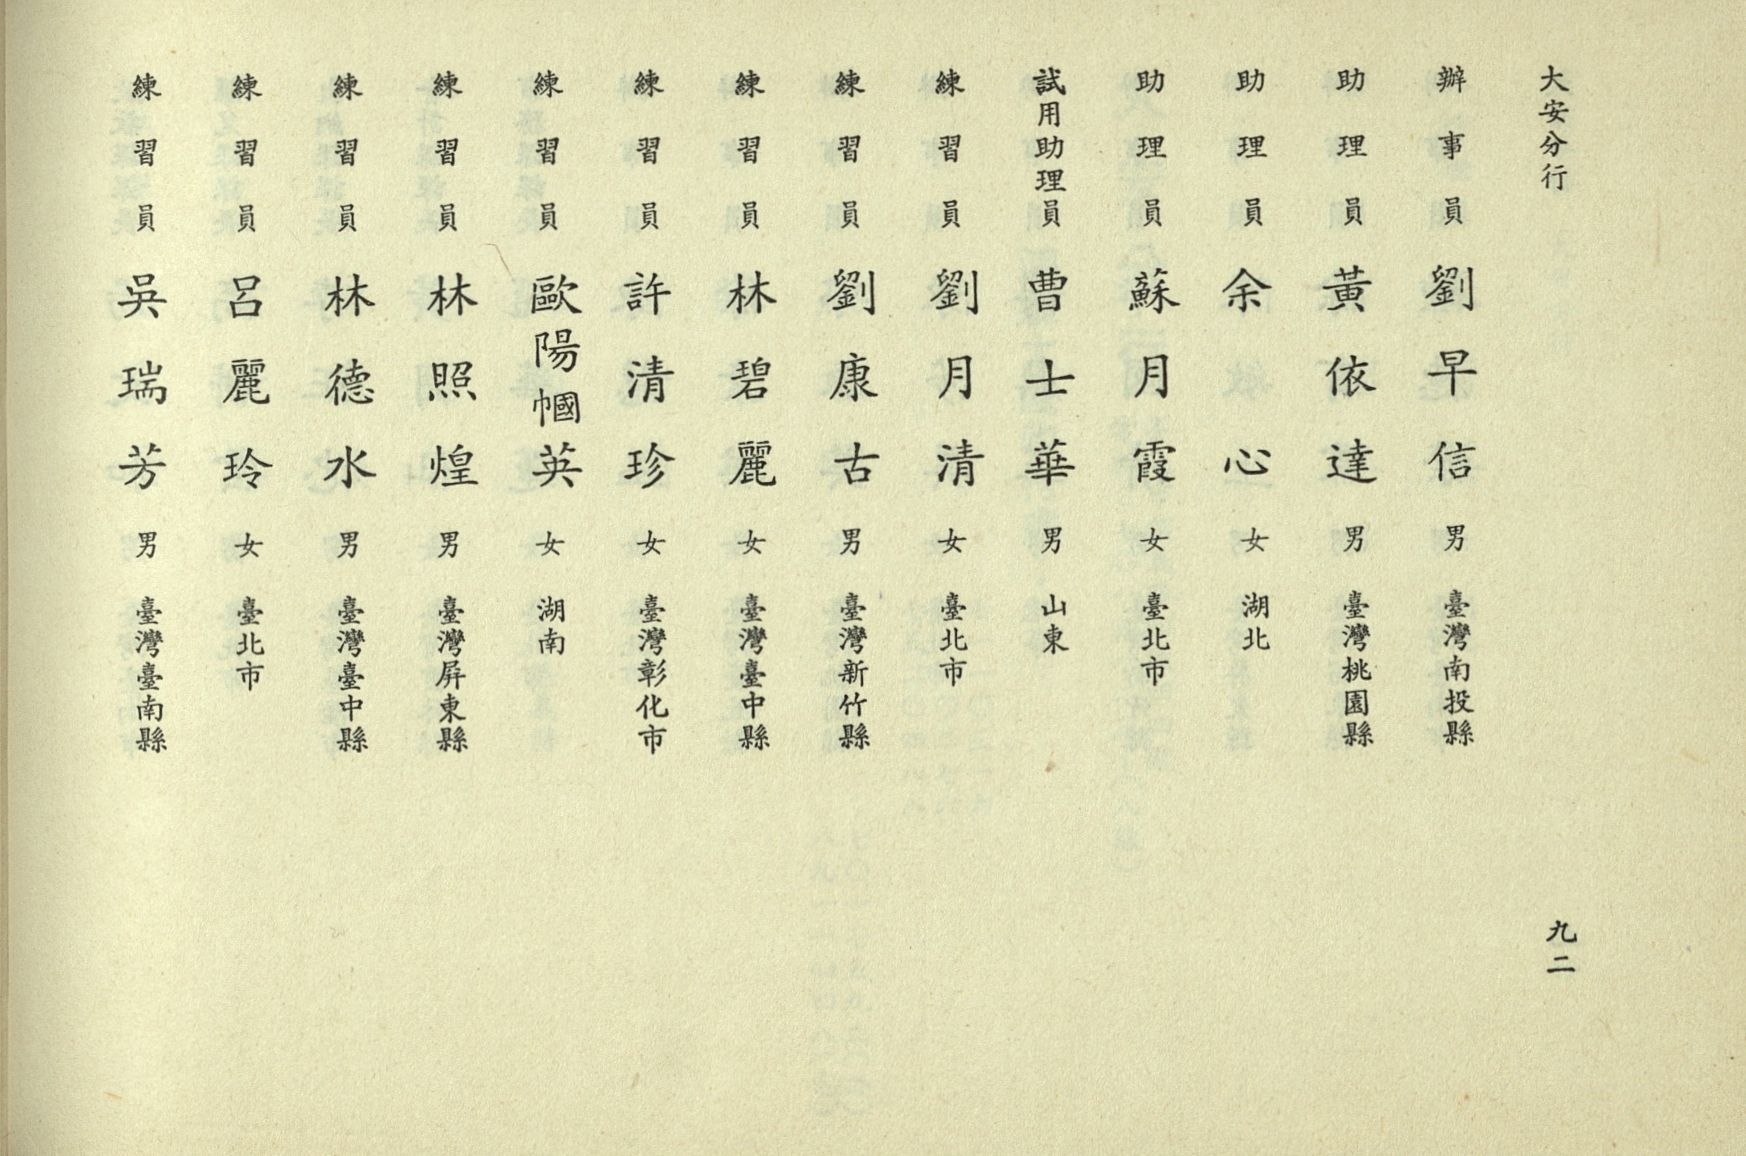 大安分行
九二
辦事員 劉早信 男 臺灣南投縣
助理員 黃依達 男 臺灣桃園縣
助理員 余心 女 湖北
助理員 蘇月霞 女 臺北市
試用助理員 曹士華 男 山東
練習員 劉月清 女 臺北市
練習員 劉康古 男 臺灣新竹縣
練習員 林碧麗 女 臺灣臺中縣
練習員 許清珍 女 臺灣彰化市
練習員 歐陽幗英 女 湖南
練習員 林照煌 男 臺灣屏東縣
練習員 林德水 男 臺灣臺中縣
練習員 呂麗玲 女 臺北市
練習員 吳瑞芳 男 臺灣臺南縣